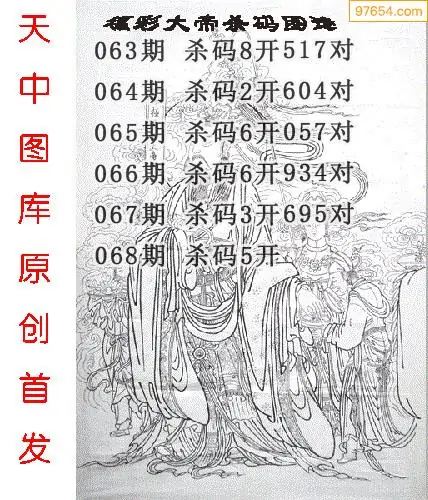 97654.com
福彩大帝杀码图谜
063期 杀码8开517对
064期 杀码2开604对
065期 杀码6开057对
066期 杀码6开934对
067期 杀码3开695对
068期 杀码5开
天中图库原创首发